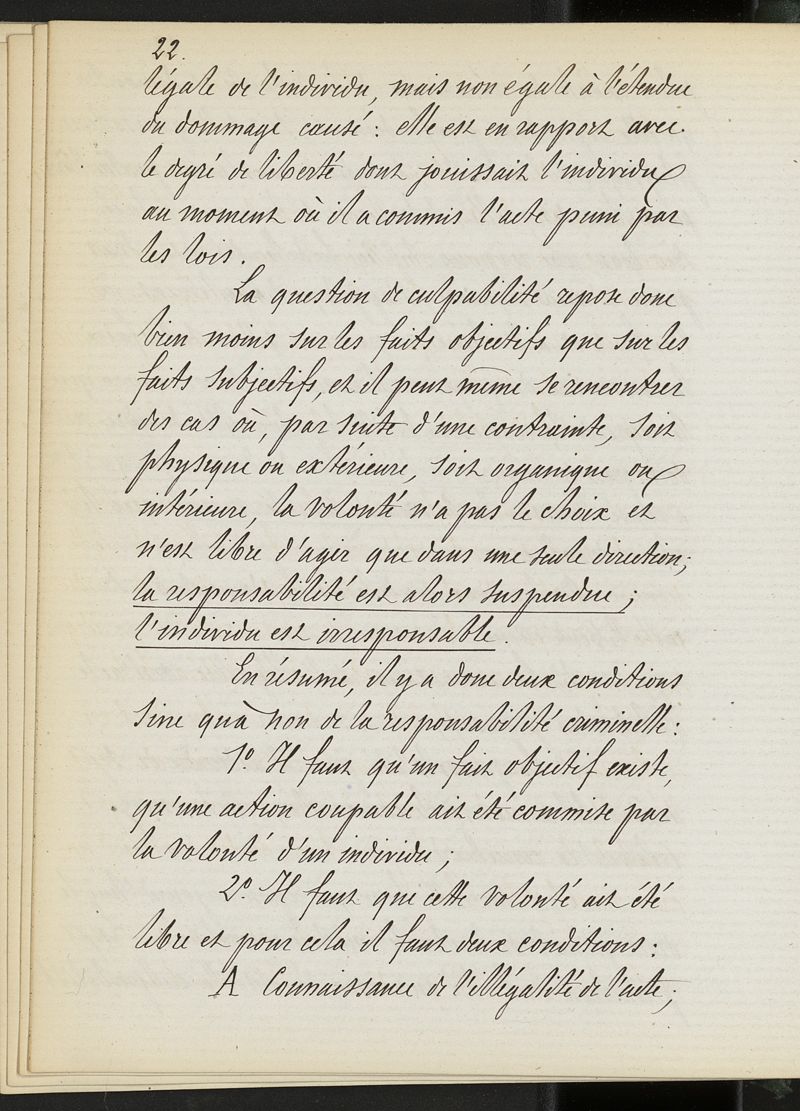 22.
légale de l'individu, mais non égale à l'étendue
du dommage causé : elle est en rapport avec
le degré de liberté dont jouissait l'individu
au moment où il a commis l'acte puni par
les lois.
La question de culpabilité repose donc
bien moins sur les faits objectifs que sur les
faits subjectifs, et il peut même se rencontrer
des cas où, par suite d'une contrainte, soit
physique ou extérieure, soit organique ou
intérieure, la volonté n'a pas le choix et
n'est libre d'agir que dans une seule direction;
la responsabilité est alors suspendue ;
l'individu est irresponsable.
En résumé, il y a donc deux conditions
sine quà non de la responsabilité criminelle :
1º. Il faut qu'un fait objectif existe,
qu'une action coupable ait été commise par
la volonté d'un individu ;
2º. Il faut que cette volonté ait été
libre et pour cela il faut deux conditions :
A Connaissance de l'illégalité de l'acte ;